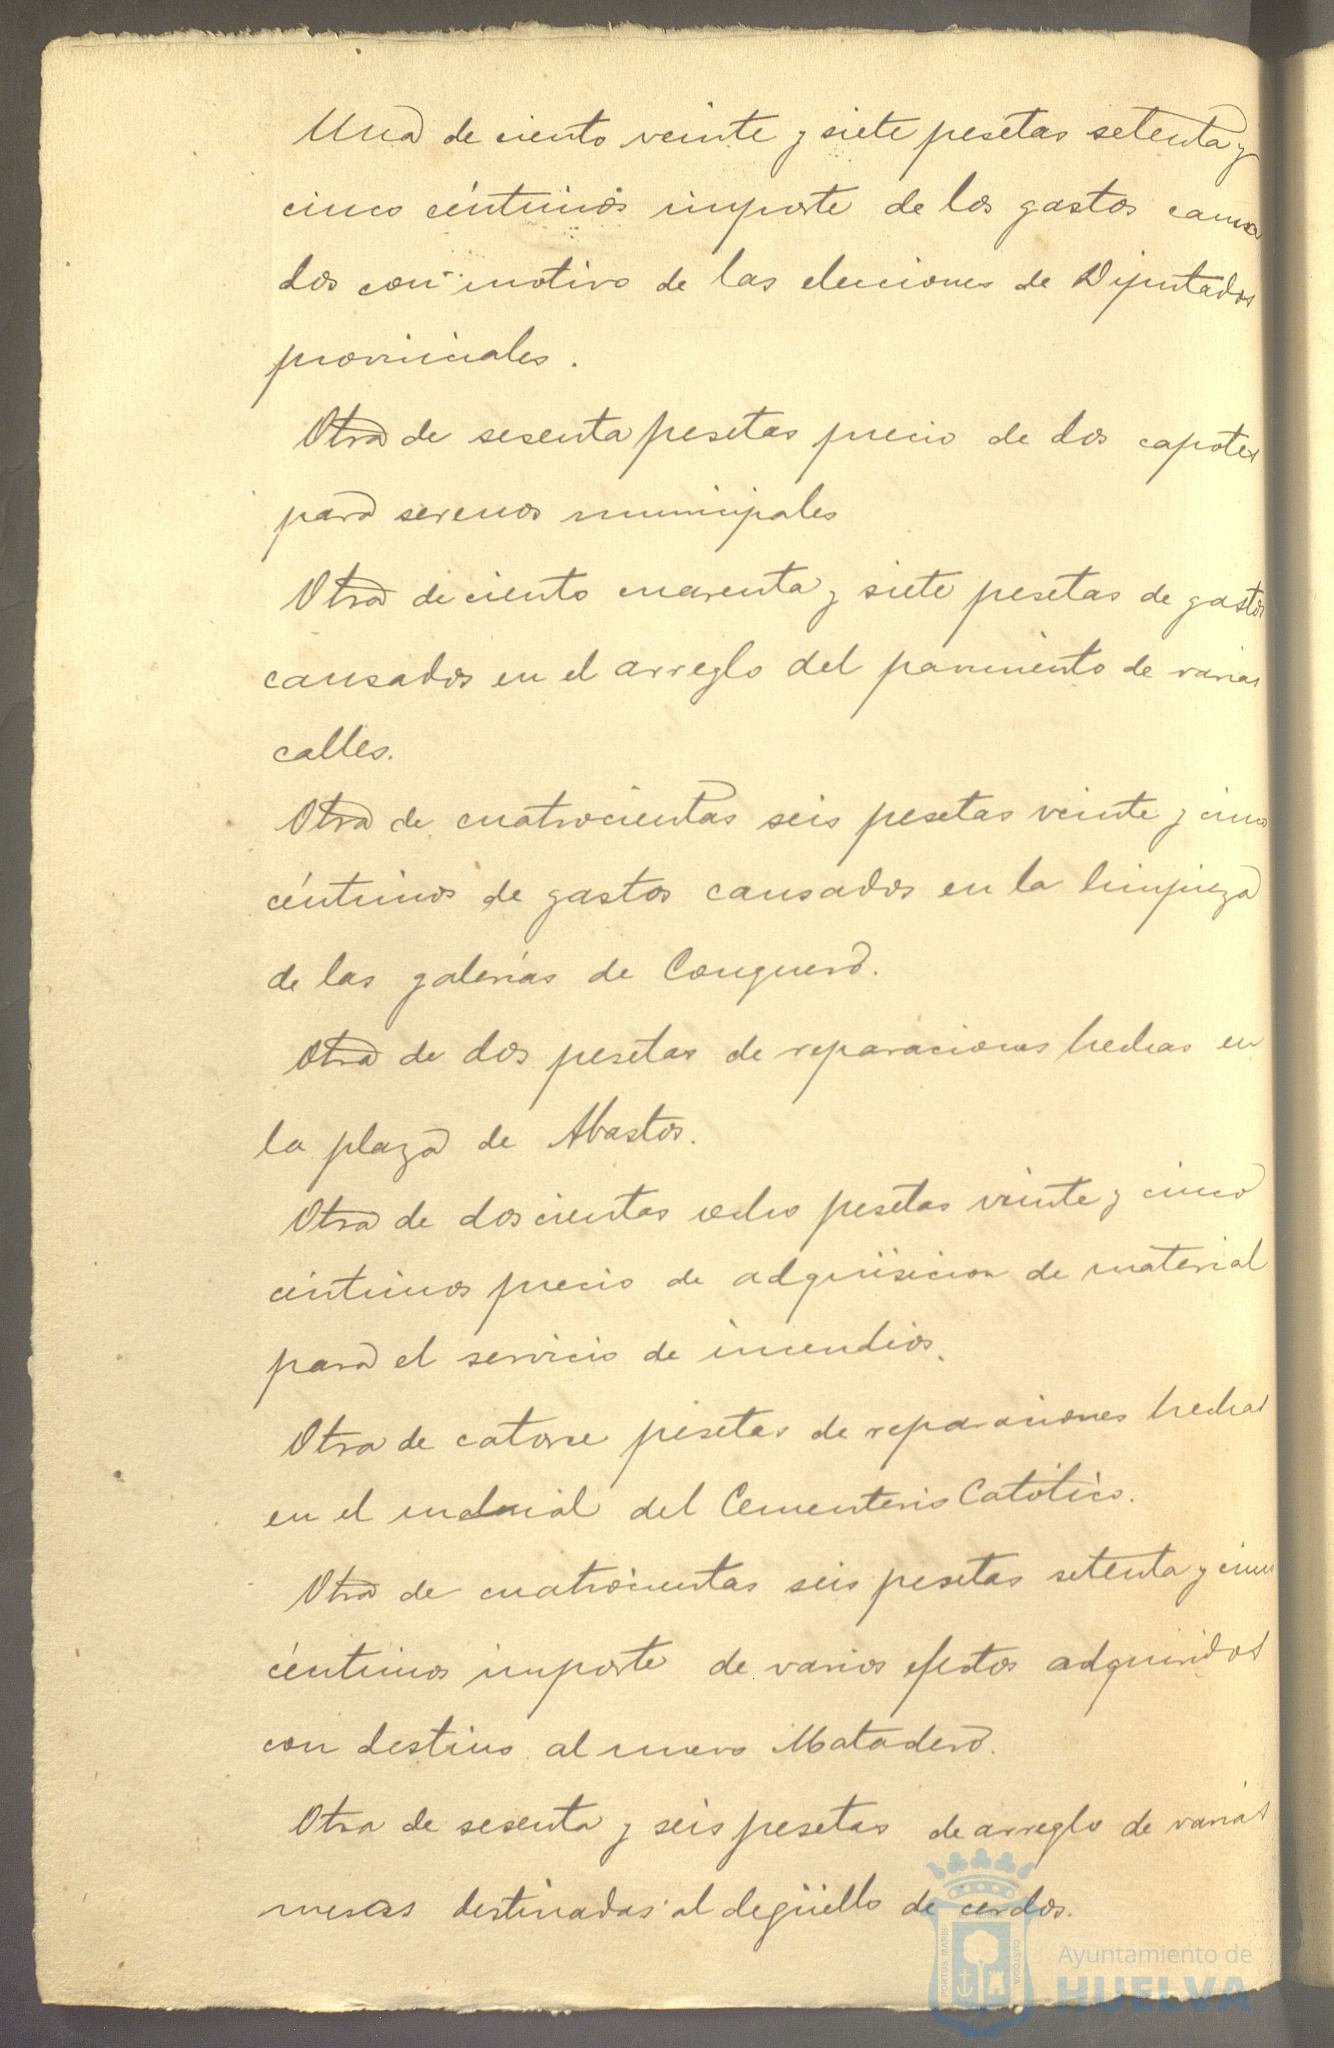 Una de ciento veinte y siete pesetas setenta y
cinco céntimos importe de los gastos causa
dos con motivo de las elecciones de Diputados
provinciales.
Otra de sesenta pesetas precio de dos capotes
para serenos municipales
Otra de ciento cuarenta y siete pesetas de gastos
causados en el arreglo del pavimento de varias
calles.
Otra de cuatrocientas seis pesetas veinte y cinco
céntimos de gastos causados en la limpieza
de las galerías de Conquero.
Otra de dos pesetas de reparaciones hechas en
la plaza de Abastos.
Otra de doscientas ocho pesetas veinte y cinco
céntimos precio de adquisicion de material
para el servicio de incendios.
Otra de catorce pesetas de reparaciones hechas
en el del Cementerio Católico.
Otra de cuatrocientas seis pesetas setenta y cinco
céntimos importe de varios efectos adquiridos
con destino al nuevo Matadero.
Otra de sesenta y seis pesetas de arreglo de varias
mesas destinadas al degüello de cerdos.
Ayuntamiento de
HUELVA